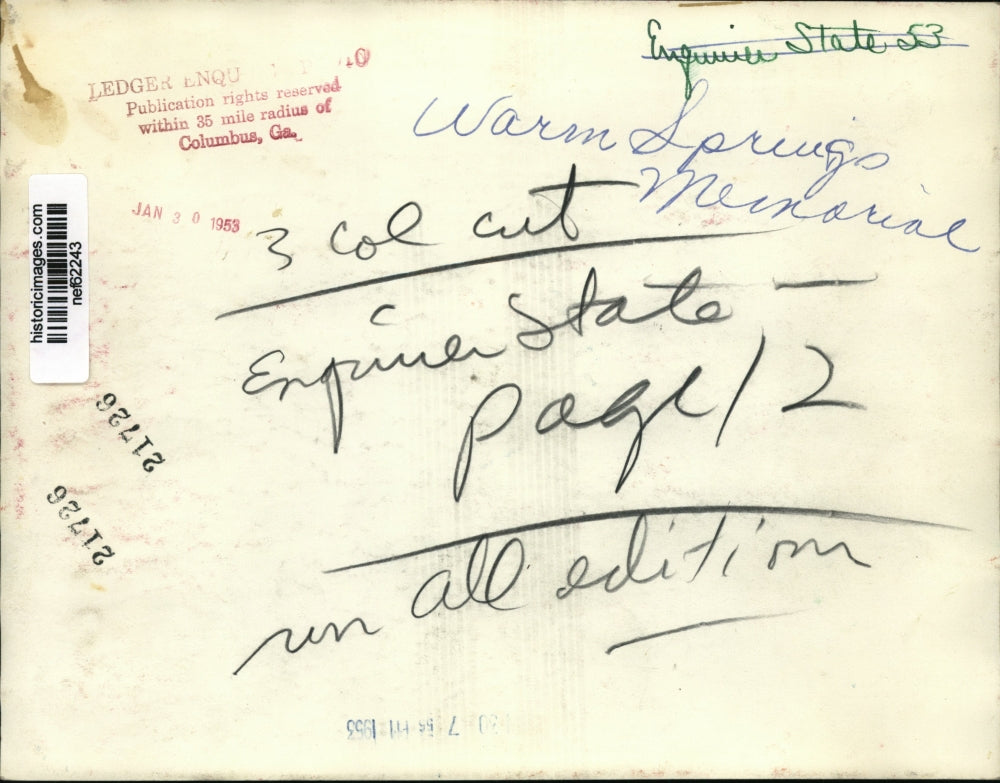 Enquirer State 53
LEDGER ENQU
Publication rights reserved
within 35 mile radius of
Columbus, Ga.
Warm Springs
Memorial
JAN 30 1953
3 col cut
Enquirer State
page 12
run all edition
historicimages.com
nef62243
21726
21726
30 7 56 PM 1953